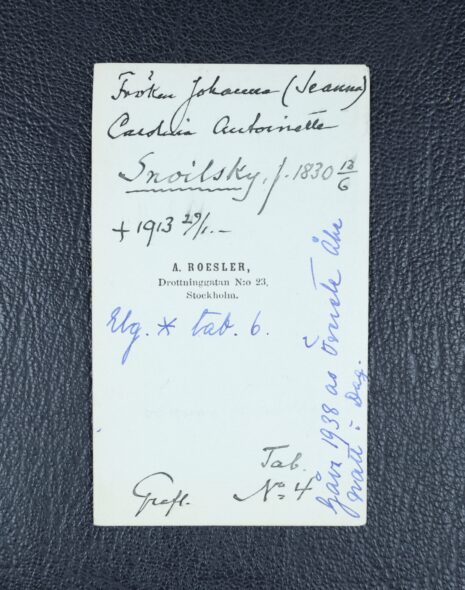 Fröken Johanna (Jeanna)
Carolina Antoinette
Snoilsky, f. 1830 13/6
+ 1913 29/1.-
A. ROESLER,
Drottninggatan N:o 23,
Stockholm.
Elg. * tab. 6.
Tab.
Grefl. No 4
Gåva 1938 av
natt : Dag.